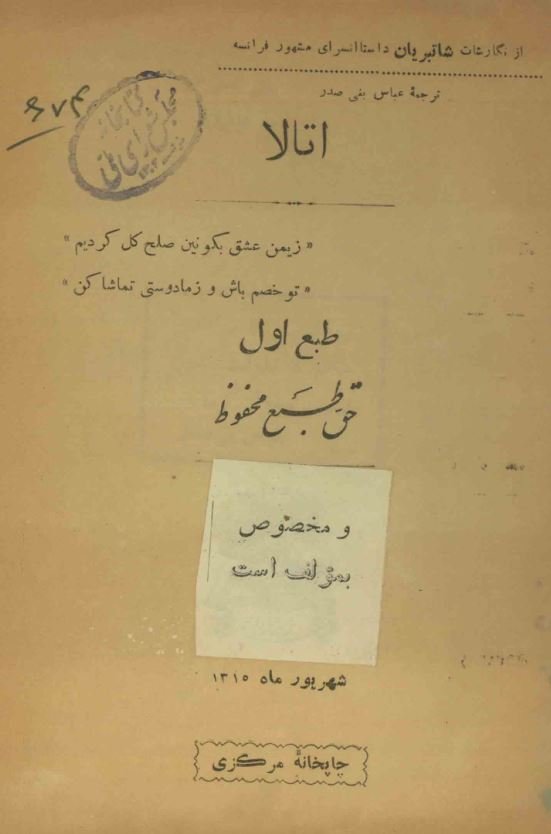 از نگارشات شاتبریان داستانسرای مشهور فرانسه
ترجمهٔ عباس بنی صدر
اتالا
« زیمن عشق بکونین صلح کل کردیم »
« تو خصم باش و زمادوستی تماشا کن »
طبع اول
حق طبع محفوظ
و مخصوص
بمؤلف است
شهریور ماه ۱۳۱۵
چاپخانهٔ مرکزی
کتابخانه
مجلس شورای ملی